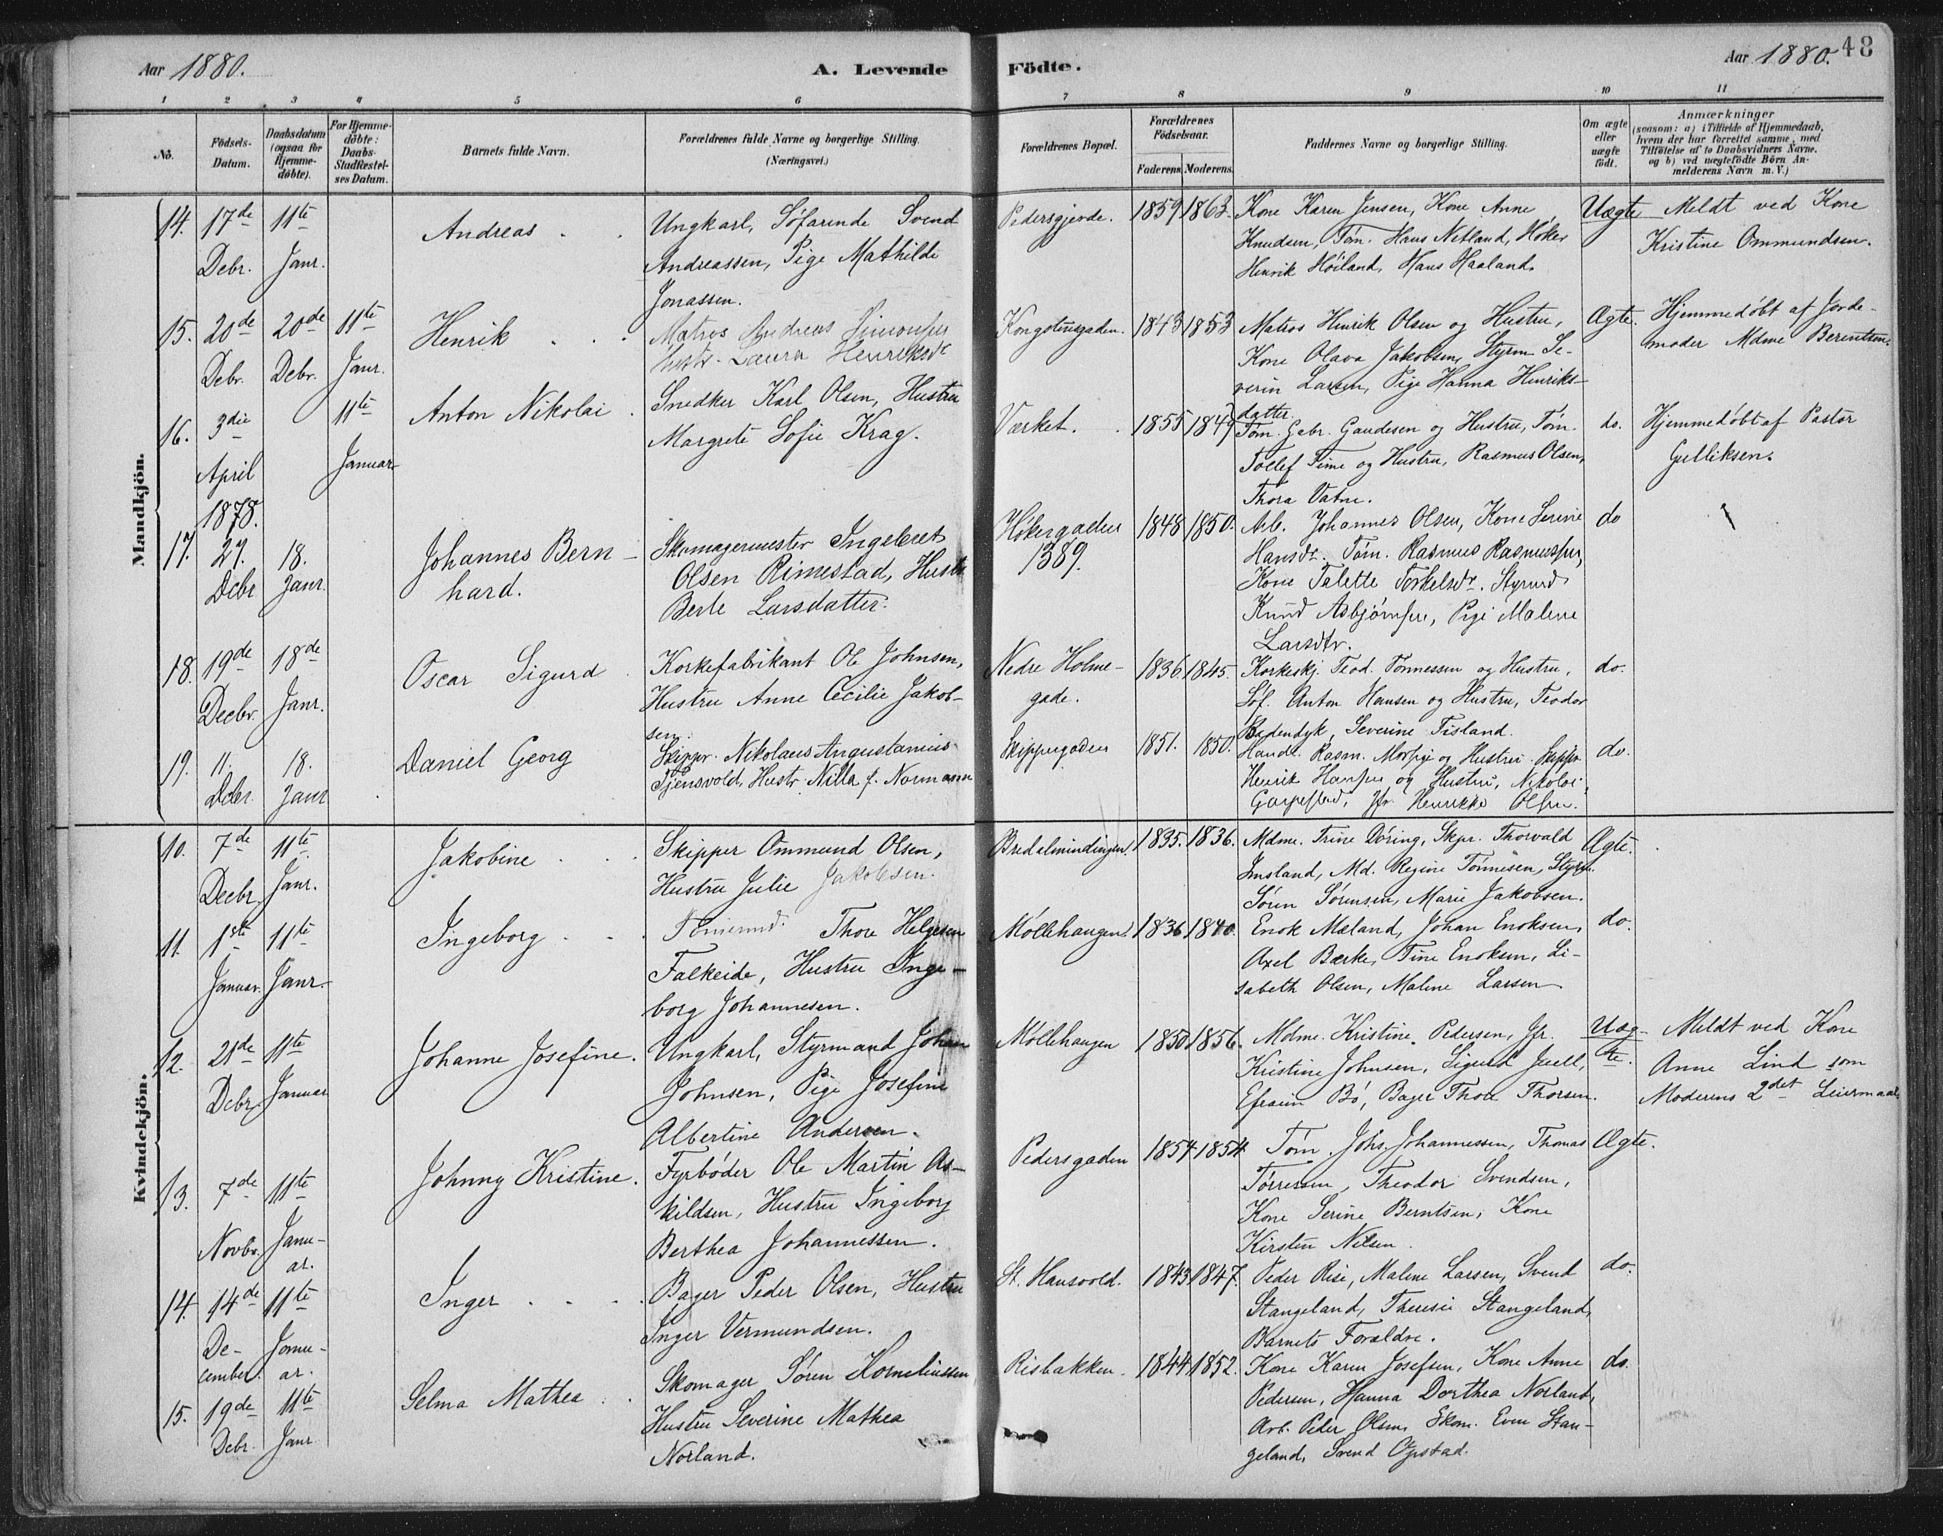 Aar 1880.
A. Levende
Födte.
Aar 1880.
48
1 2 3 4 5 6 7 8 9 10 11
No.
Födsels-
Datum.
Daabsdatum
(ogsaa for
Hjemme-
döbte).
For Hjemme-
döbte:
Daabs-
Stadfæstel-
ses Datum.
Barnets fulde Navn.
Forældrenes fulde Navne og borgerlige Stilling.
(Næringsvei.)
Forældrenes Bopæl.
Forældrenes
Födselsaar.
Faderens. Moderens.
Faddernes Navne og borgerlige Stilling.
Om ægte
eller
uægte
födt.
Anmærkninger
(saasom: a) i Tilfælde af Hjemmedaab,
hvem der har forrettet samme, med
Tilföielse af to Daabsvidners Navne,
og b) ved uægtefödte Börn An-
melderens Navn m. V.)
Mandkjön.
14. 17de
Debr.
11te
Janr.
Andreas
Ungkarl, Söfarende Svend
Andreassen, Pige Mathilde
Jonassen.
Pedersgjerde.
1859 1863.
Kone Karen Jensen, Kone Anne
Knudsen, Töm. Hans Netland, Höker
Henrik Höiland, Hans Haaland.
Uægte
Meldt ved Kone
Kristine Ommundsen.
15. 20de
Debr.
20de
Debr.
11te
Janr.
Henrik
Matros Andreas Simonsen
Hustr. Laura Henriksdr
Kongstensgaden.
1843 1853
Matros Henrik Olsen og Hustru,
Kone Olava Jakobsen, Styrm. Se-
verin Larsen, Pige Hanna Henriks-
datter.
Ægte.
Hjemmedøbt af Jorde-
moder Mdme Berentsen.
16. 3die
April
1878.
11te
Januar
Anton Nikolai
Snedker Karl Olsen, Hustru
Margrete Sofie Krag.
Værket.
1855 1849
Töm. Gabr. Gaudesen og Hustru, Töm.
Tollef Time og Hustru, Rasmus Olsen,
Thora Vatne.
do.
Hjemmedøbt af Pastor
Gulliksen.
17. 27.
Dcbr
18.
Janr.
Johannes Bern-
hard.
Skomagermester Ingebret
Olsen Rimestad, Hustr.
Berte Larsdatter.
Høkergaden
1389.
1848 1850.
Arb. Johannes Olsen, Kone Serine
Hansdr. Töm. Rasmus Rasmussen,
Kone Talette Torkelsdr. Styrmd
Knud Asbjørnsen, Pige Malene
Larsdtr.
do
18. 19de
Decbr.
18de
Janr.
Oscar Sigurd
Korkefabrikant Ole Johnsen,
Hustru Anne Cecilie Jakob-
sen.
Nedre Holme-
gade.
1836. 1845.
Korkeskj. Teod. Tønnessen og Hustru,
Søf. Anton Hansen og Hustru, Teodor
Severine Tisland.
do.
19. 11.
Dcbr.
18.
Janr
Daniel Georg
Skippr. Nikolaus Augustanius
Tjensvold, Hustr. Nilla f. Normann
Skippergaden
1851. 1850.
Handl. Rasm. og Hustru Skippr
Henrik Hansen og Hustru, Nikolai
Jfr Henrikke Olsen.
do.
Kvindekjön.
10. 7de
Decbr.
11te
Janr.
Jakobine
Skipper Ommund Olsen,
Hustru Julie Jakobsen.
Bredalmindingen.
1835. 1836.
Mdme. Trine Döring, Skpr. Thorvald
Imsland, Md. Regine Tönnesen, Styrm.
Sören Sörensen, Marie Jakobsen.
Ægte.
11. 1ste
Januar
11te
Janr.
Ingeborg
Thore Helgesen
Falkeide, Hustru Inge-
borg Johannesen.
Møllehaugen.
1836 1840.
Enok Maland, Johan Enoksen,
Axel Bærke, Tine Enoksen, Li-
sabeth Olsen, Malene Larsen
do.
12. 21de
Debr
11te
Januar
Johanne Josefine.
Ungkarl, Styrmand Johan
Johnsen, Pige Josefine
Albertine Andersen.
Møllehaugen
1850. 1856.
Mdme. Kristine Pedersen, Jfr.
Kristine Johnsen, Sigurd Juell,
Efraim Bö, Bager Thore Thorsen.
Uæg-
te.
Meldt ved Kone
Anne Lind som
Moderens 2det Leiermaal
13. 7de
Novbr.
11te
Janu-
ar.
Johnny Kristine.
Fyrbøder Ole Martin As-
kildsen, Hustru Ingeborg
Berthea Johannessen.
Pedersgaden
1854 1854
Töm. Johs. Johannessen, Thomas
Tørressen, Theodor Svendsen,
Kone Serine Berntsen, Kone
Kirsten Nilsen.
Ægte.
14. 14de
De-
cember.
11te
Janu-
ar.
Inger
Bager Peder Olsen, Hustru
Inger Vermundsen.
St. Hansvold.
1843 1847.
Peder Rise, Malene Larsen, Svend
Stangeland, Theresie Stangeland,
Barnets Forældre.
do.
15. 19de
Debr.
11te
Janr.
Selma Mathea
Skomager Sören Korneliussen
Hustru Severine Mathea
Norland.
Risbakken.
1844 1852.
Kone Karen Josefsen, Kone Anne
Pedersen, Hanna Dorthea Norland,
Arb. Peder Olsen, Skom. Even Stan-
geland, Svend Opstad.
do.